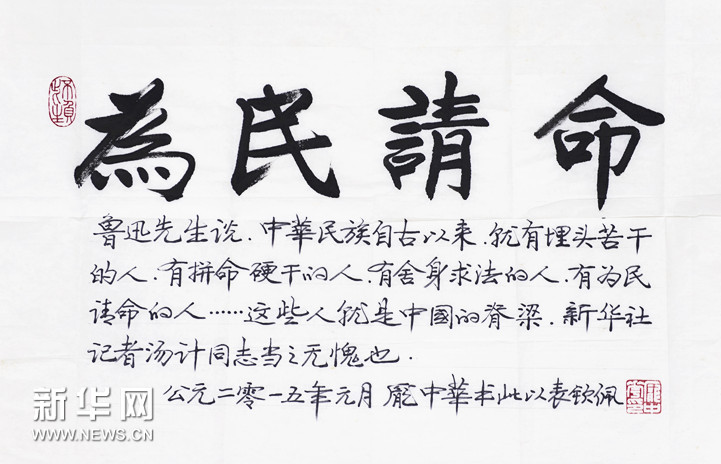 為民請命
鲁迅先生说、中華民族自古以来、就有埋头苦干
的人、有拼命硬干的人、有舍身求法的人、有为民
请命的人……这些人就是中國的脊梁、新华社
记者汤计同志当之无愧也.
公元二零一五年元月 龐中華书此以表钦佩
新华网
WWW.NEWS.CN